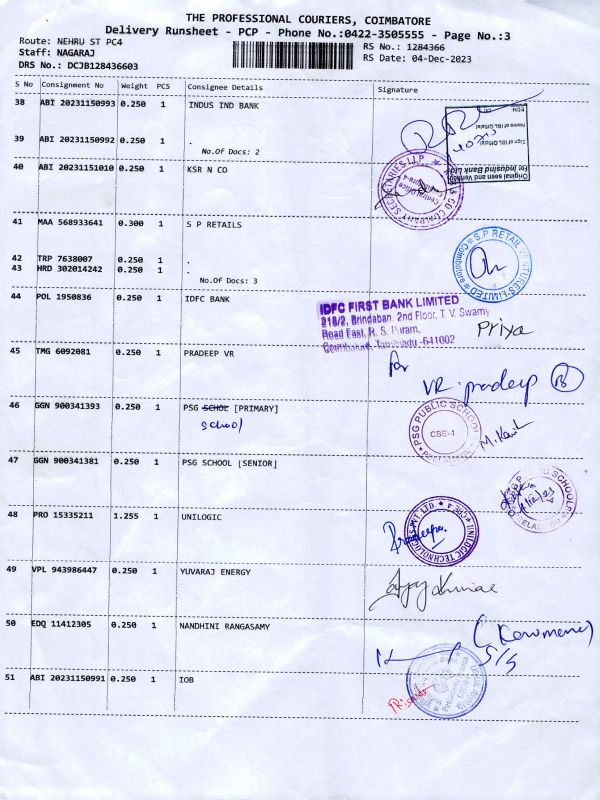 THE PROFESSIONAL COURIERS, COIMBATORE
Delivery Runsheet - PCP - Phone No.:0422-3505555 - Page No.:3
Route: NEHRU ST PC4
RS No.: 1284366
Staff: NAGARAJ
RS Date: 04-Dec-2023
DRS No.: DCJB128436603
S No Consignment No Weight PCS Consignee Details Signature
38 ABI 20231150993 0.250 1 INDUS IND BANK
39 ABI 20231150992 0.250 1 .
No.Of Docs: 2
Original seen and Verified
For IndusInd Bank Ltd.
Sign of IBL Official
Name of IBL Official
40 ABI 20231151010 0.250 1 KSR N CO
COMPANY SECRETARIES LLP
41 MAA 568933641 0.300 1 S P RETAILS
42 TRP 7638007 0.250 1 .
43 HRD 302014242 0.250 1 .
No.Of Docs: 3
S.P. RETAIL VENTURES LIMITED
Coimbatore
44 POL 1950836 0.250 1 IDFC BANK
IDFC FIRST BANK LIMITED
218/2, Brindaban, 2nd Floor, T. V. Swamy
Road East, R. S. Puram,
Coimbatore, Tamilnadu-641002
Priya
45 TMG 6092081 0.250 1 PRADEEP VR
for
VR. pradeep
46 GGN 900341393 0.250 1 PSG SCHOL [PRIMARY]
School
PSG PUBLIC SCHOOL
CBE-4
47 GGN 900341381 0.250 1 PSG SCHOOL [SENIOR]
48 PRO 15335211 1.255 1 UNILOGIC
UNILOGIC TECHNOLOGIES PVT. LTD
CBE 4
Pradeepa
49 VPL 943986447 0.250 1 YUVARAJ ENERGY
50 EDQ 11412305 0.250 1 NANDHINI RANGASAMY
51 ABI 20231150991 0.250 1 IOB